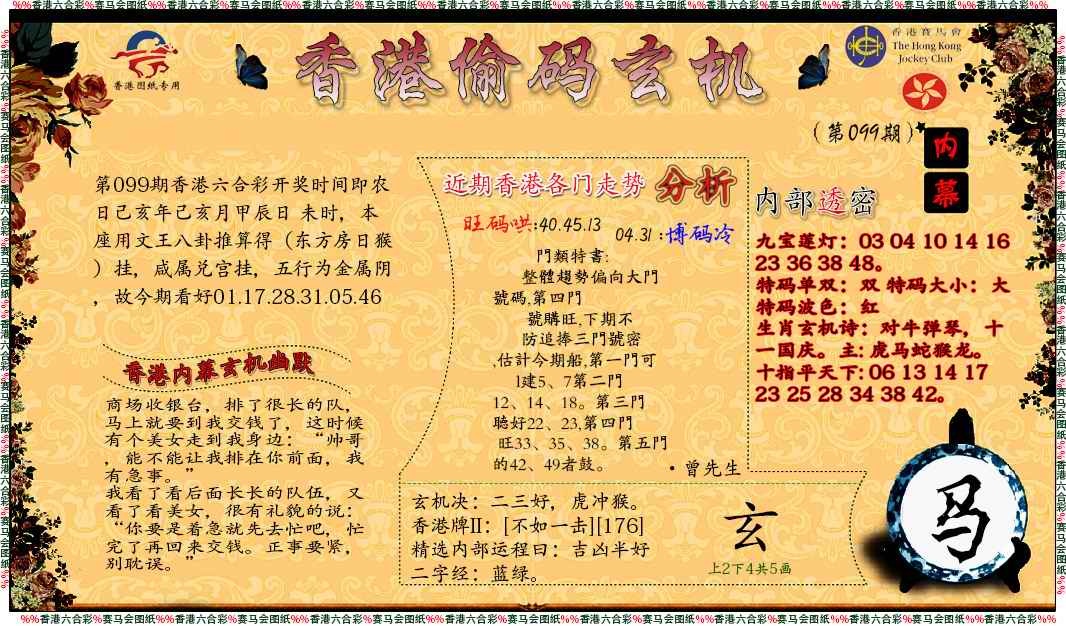 %%香港六合彩%赛马会图纸%%香港六合彩%赛马会图纸%%香港六合彩%赛马会图纸%%香港六合彩%赛马会图纸%%香港六合彩%赛马会图纸%%香港六合彩%赛马会图纸%%香港六合彩%赛马会图纸%%香港六合彩%%
香港图纸专用
香港偷码玄机
香港賽馬會
The Hong Kong
Jockey Club
(第099期)
内
幕
第099期香港六合彩开奖时间即农
日己亥年己亥月甲辰日 未时，本
座用文王八卦推算得（东方房日猴
）挂，咸属兑宫挂，五行为金属阴
，故今期看好01.17.28.31.05.46
香港内幕玄机幽默
商场收银台，排了很长的队，
马上就要到我交钱了，这时候
有个美女走到我身边：“帅哥
，能不能让我排在你前面，我
有急事。”
我看了看后面长长的队伍，又
看了看美女，很有礼貌的说：
“你要是着急就先去忙吧，忙
完了再回来交钱。正事要紧，
别耽误。”
近期香港各门走势 分析
旺码哄:40.45.13
04.31:博码冷
門類特書:
整體趨勢偏向大門
號碼,第四門
號購旺,下期不
防追捧三門號密
,估計今期船,第一門可
1建5、7第二門
12、14、18。第三門
聽好22、23,第四門
旺33、35、38。第五門
的42、49者鼓。
·曾先生
玄机决：二三好，虎冲猴。
香港牌II：[不如一击][176]
精选内部运程曰：吉凶半好
二字经：蓝绿。
玄
上2下4共5画
内部透密
九宝莲灯：03 04 10 14 16
23 36 38 48。
特码单双：双 特码大小：大
特码波色：红
生肖玄机诗：对牛弹琴，十
一国庆。主:虎马蛇猴龙。
十指平天下:06 13 14 17
23 25 28 34 38 42。
马
%%香港六合彩%赛马会图纸%%香港六合彩%赛马会图纸%%香港六合彩%赛马会图纸%%香港六合彩%赛马会图纸%%香港六合彩%赛马会图纸%%香港六合彩%赛马会图纸%%香港六合彩%赛马会图纸%%香港六合彩%%